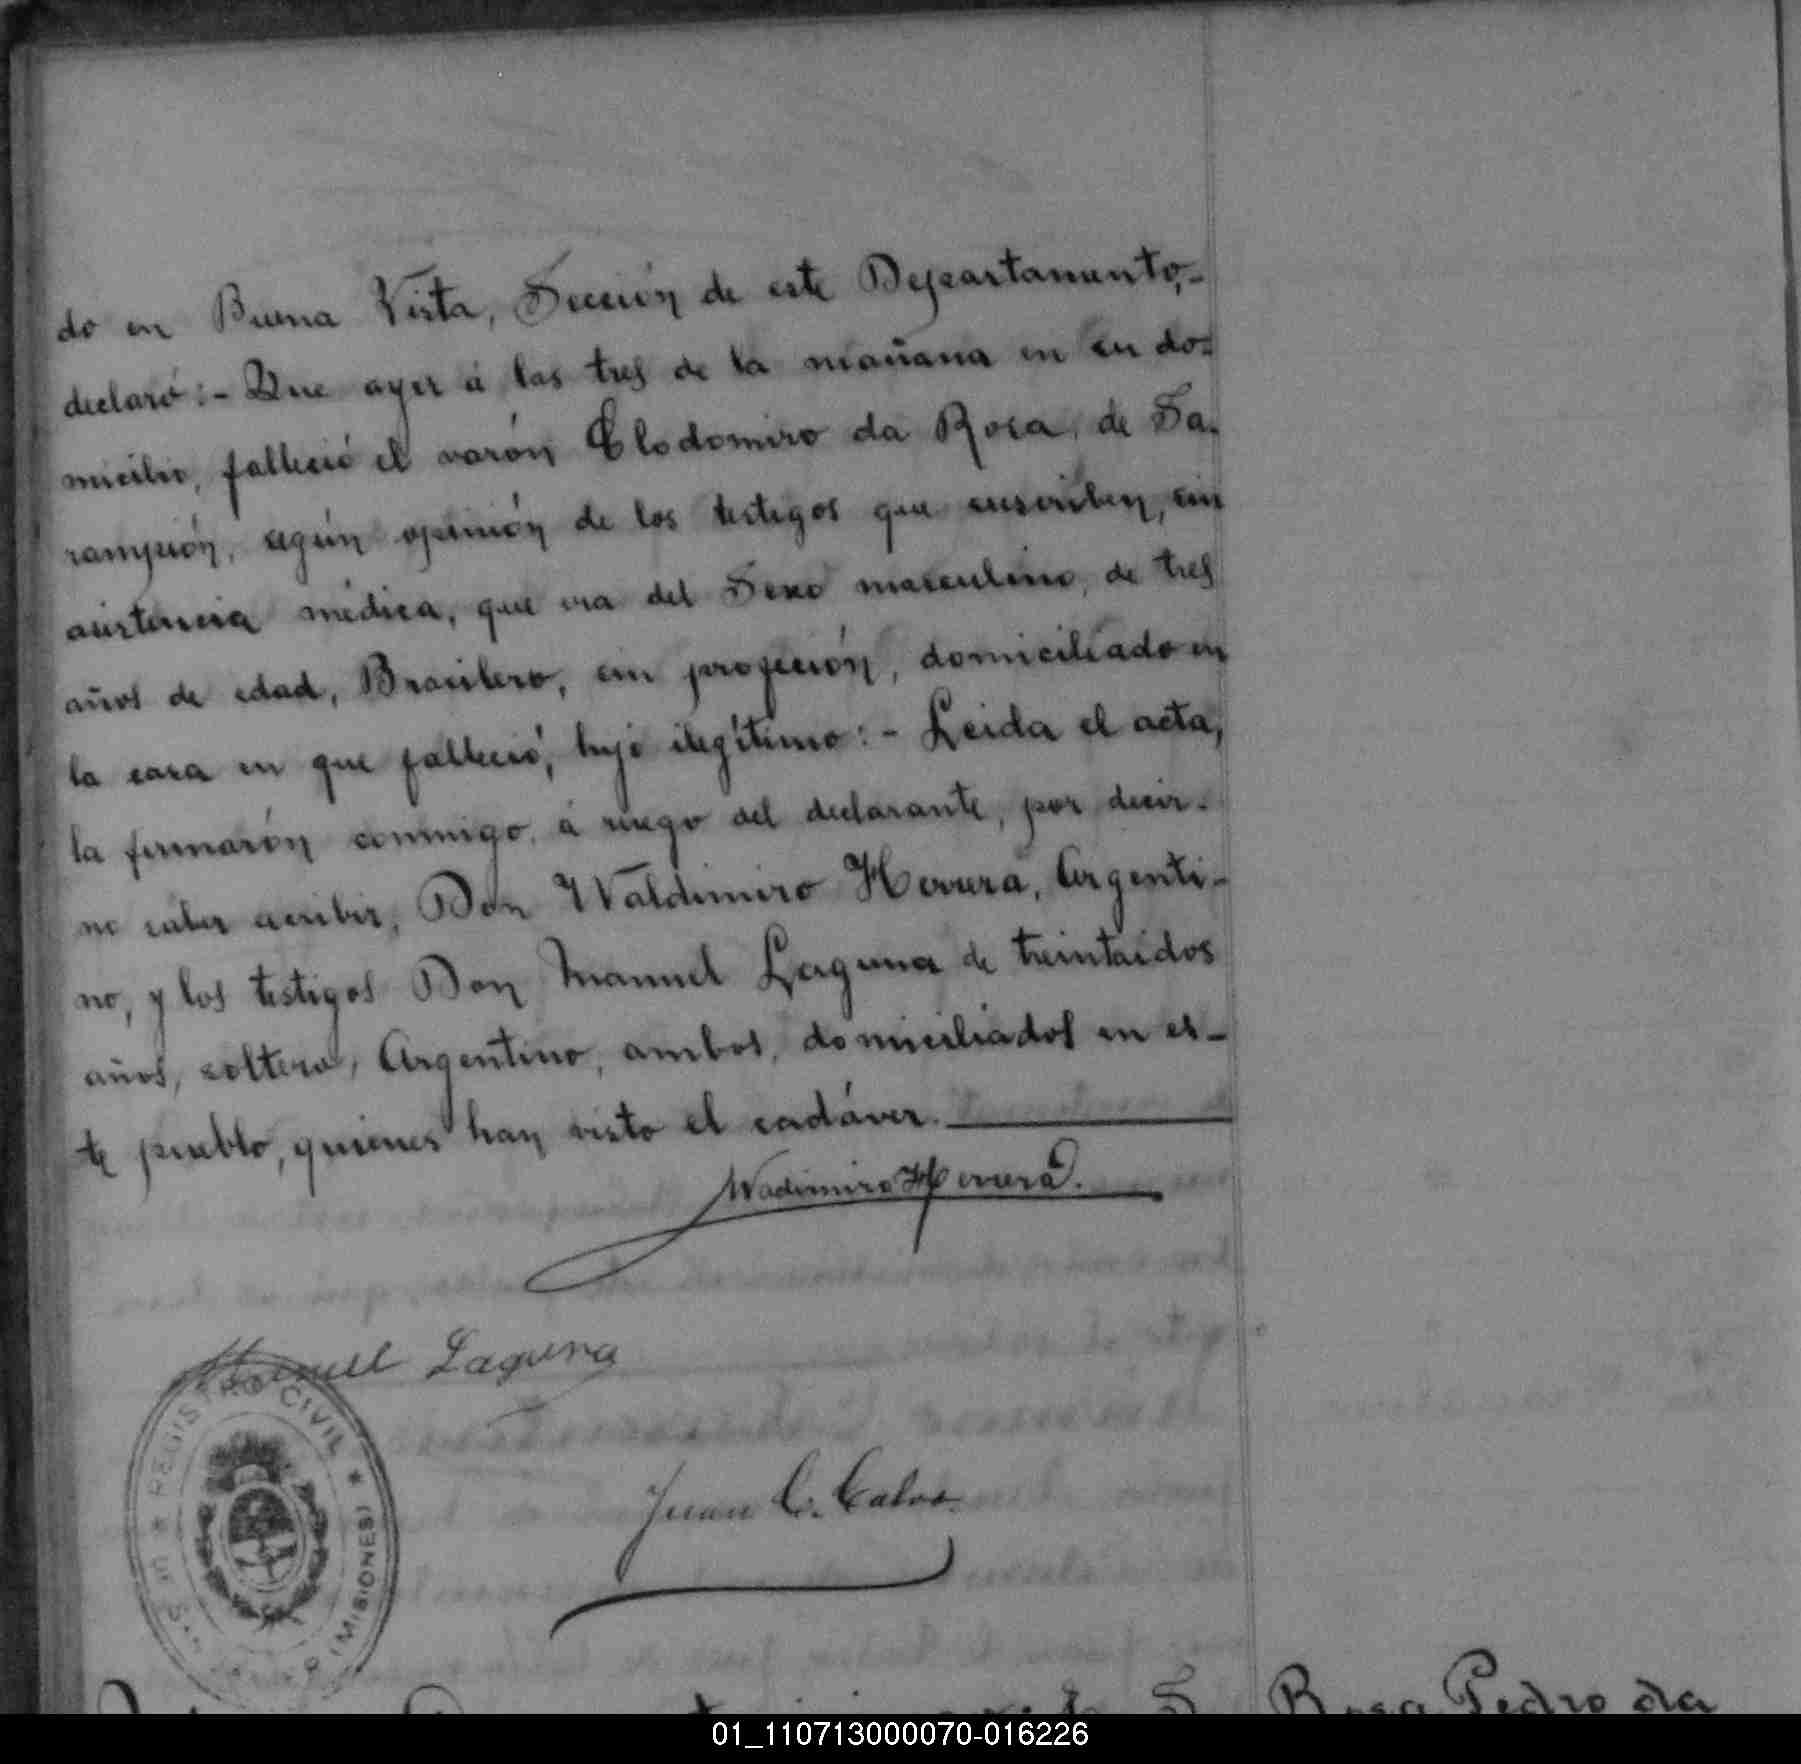 do en Buena Vista, Sección de este Departamento,-
declaró:- Que ayer á las tres de la mañana en su do-
micilio, falleció el varón Clodomiro da Rosa, de Sa-
rampión, según opinión de los testigos que suscriben, sin
asistencia médica, que era del Sexo masculino, de tres
años de edad, Brasilero, sin profesión, domiciliado en
la casa en que falleció, hijo ilegítimo:- Leida el acta,
la firmarón conmigo, á ruego del declarante, por decir-
no saber escribir, Don Waldimiro Herrera, Argenti-
no, y los testigos Don Manuel Laguna de treintaidos
años, soltero, Argentino, ambos, domiciliados en es-
te pueblo, quienes han visto el cadáver.
Wadimiro Herrera.
Manuel Laguna
REGISTRO CIVIL
(MISIONES)
Juan C. Calvo.
Rosa Pedro da
01_110713000070-016226